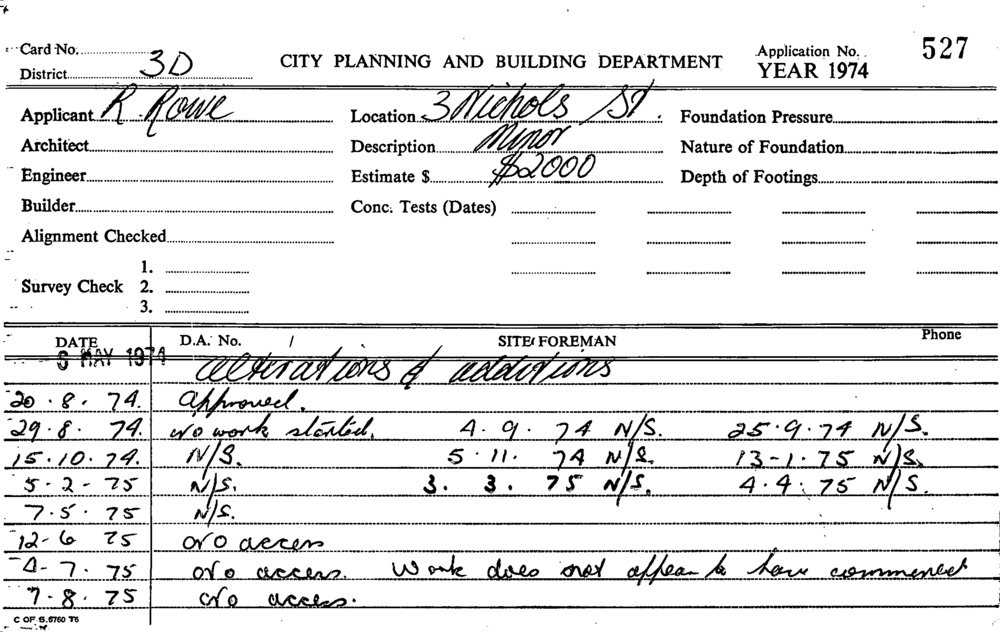 Card No. Application No. 527
District 3D CITY PLANNING AND BUILDING DEPARTMENT YEAR 1974
Applicant R Rowe Location 3 Nichols St. Foundation Pressure
Architect Description Minor Nature of Foundation
Engineer Estimate $ $2000 Depth of Footings
Builder Conc. Tests (Dates)
Alignment Checked
1.
Survey Check 2.
3.
DATE D.A. No. / SITE FOREMAN Phone
6 MAY 1974 alterations & additions
20.8.74. Approved.
29.8.74. No work started. 4.9.74 N/S. 25.9.74 N/S.
15.10.74. N/S. 5.11.74 N/S. 13-1.75 N/S.
5-2-75 N/S. 3.3.75 N/S. 4.4.75 N/S.
7.5.75 N/S.
12-6 75 No access
4-7.75 No access. Work does not appear to have commenced
7.8.75 No access.
C OF S.5760 T6